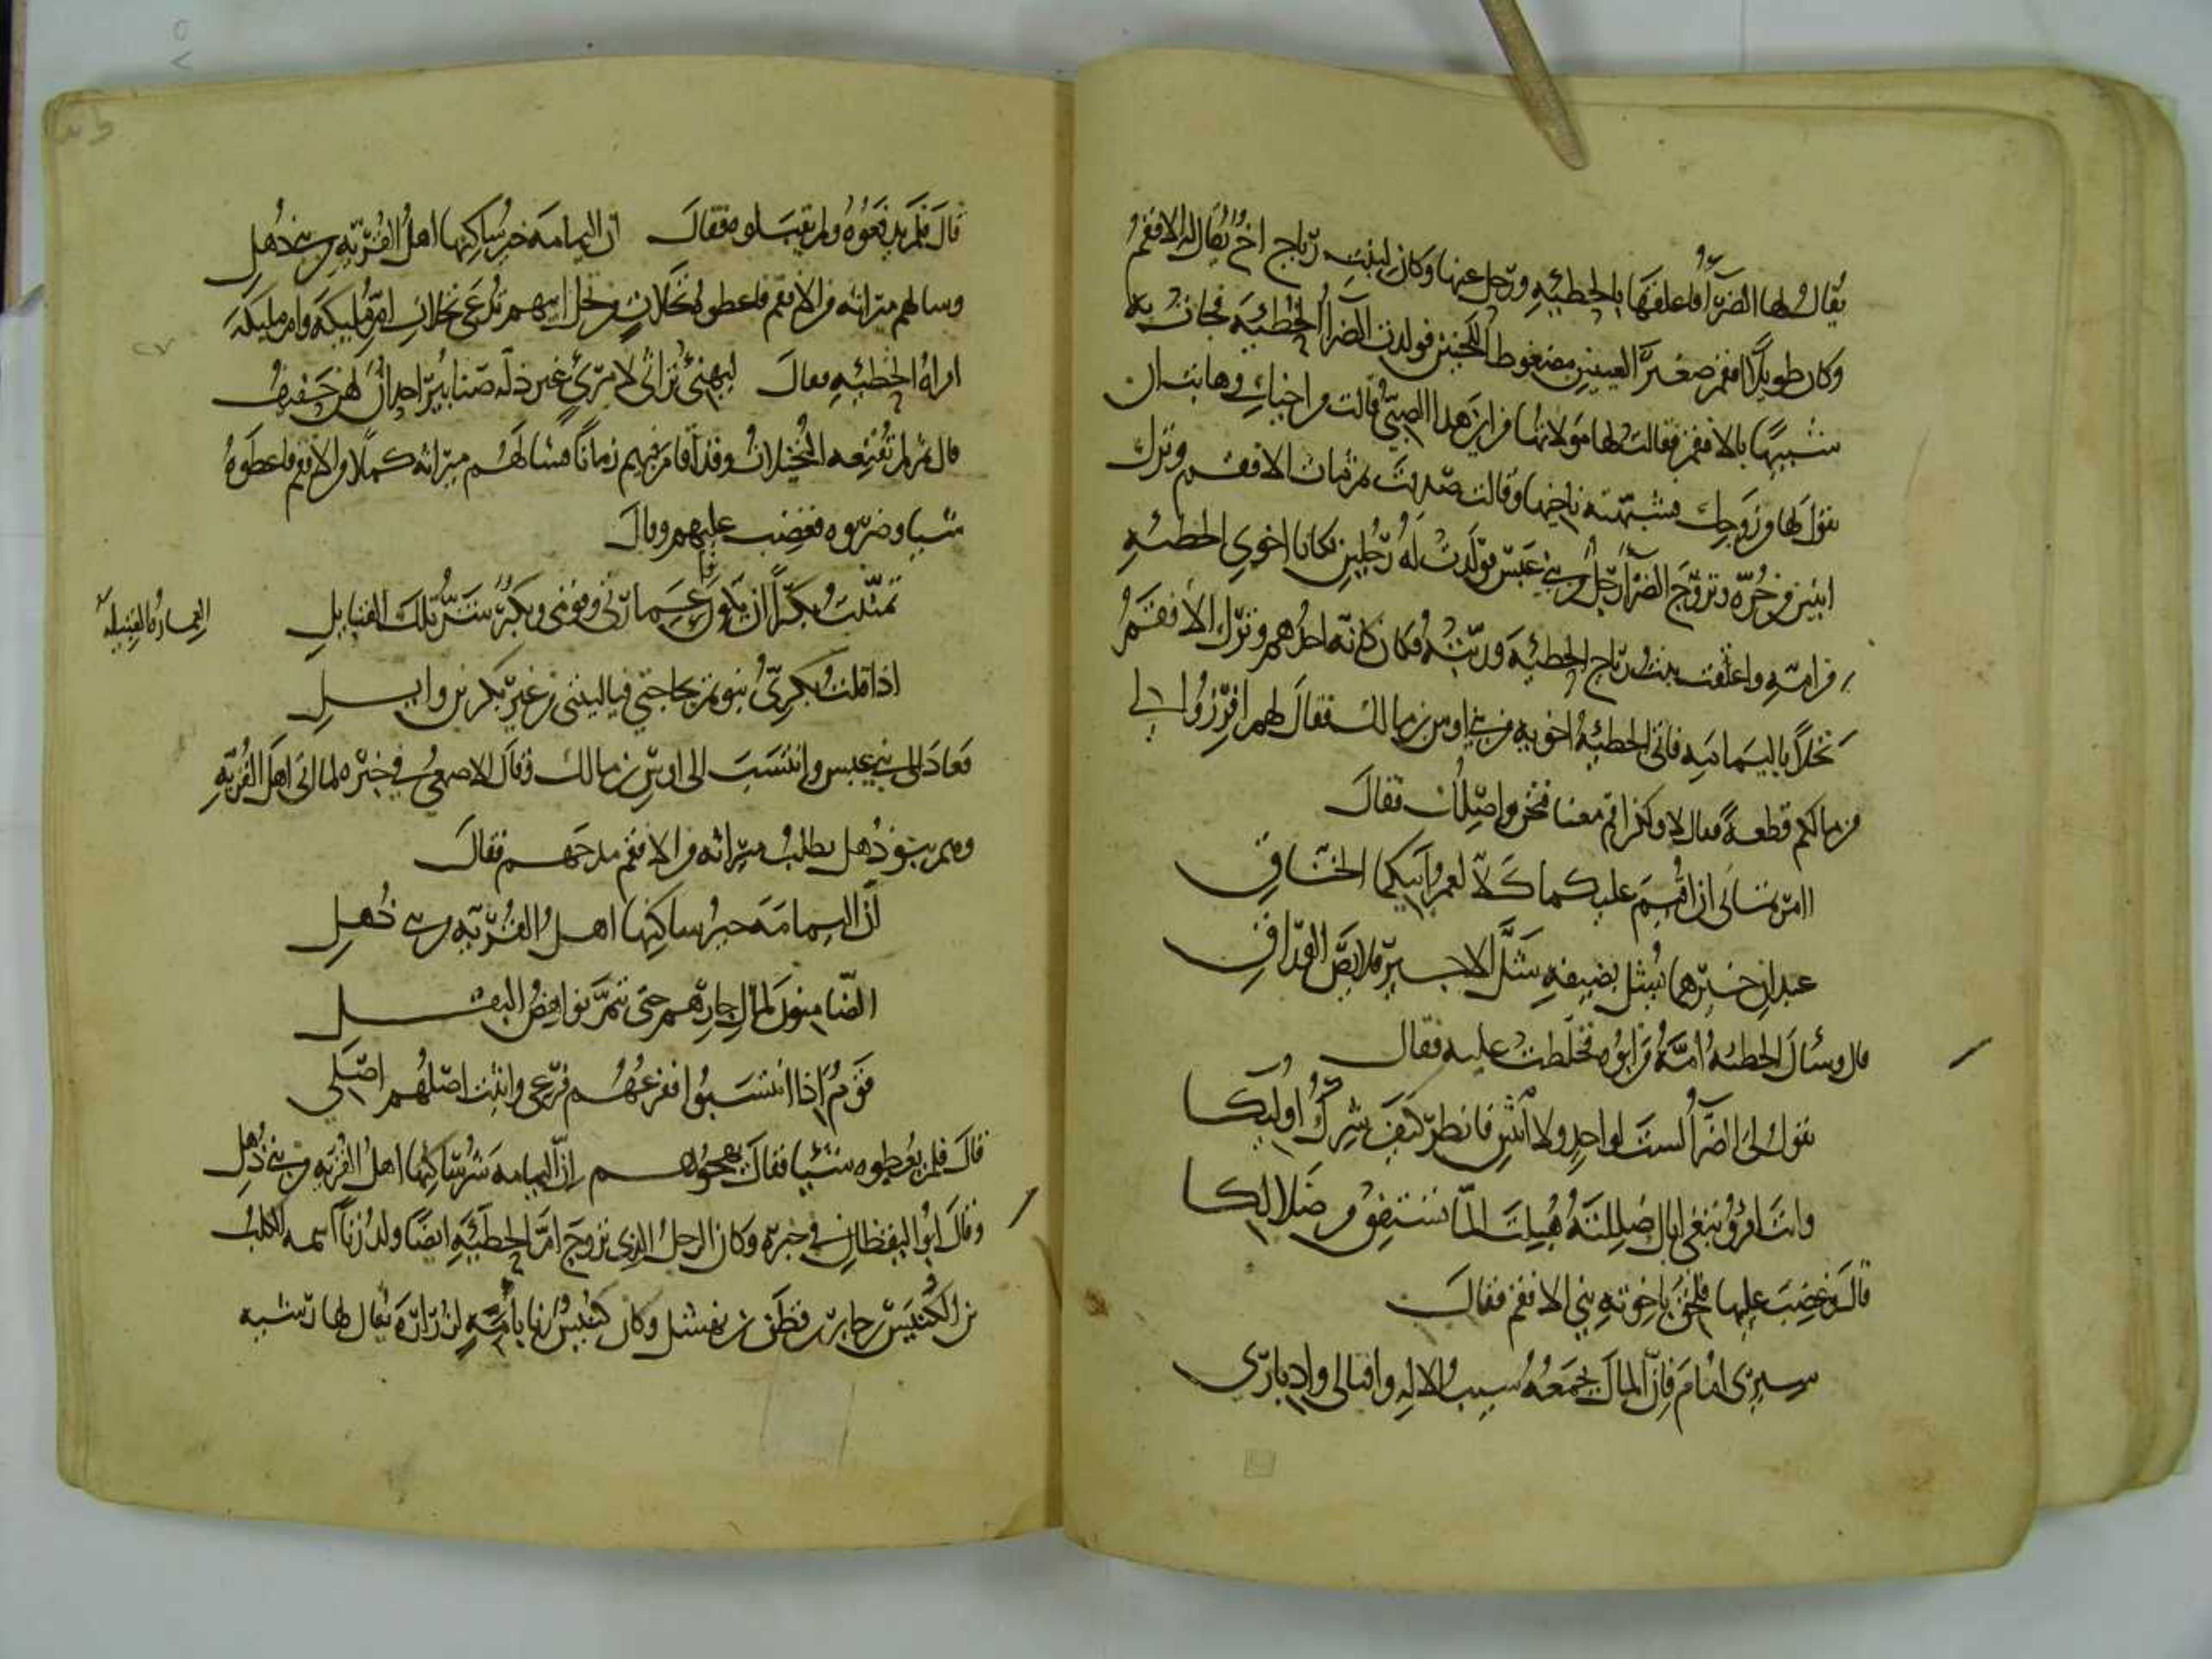 يقال لها الضرّآء فاعلقها بالحطيئه ورحل عنها وكان لبنت رياح اخٌ يقال له الافقم
وكان طويلا افقم صغير العينين مضغوط اللحيين فولدت الضرآء الحطيئة فجات به
شبيهًا بالافقم فقالت لها مولاتها من اين هذا الصبيّ قالت من اخيك وهابت ان
تقول لها من زوجك فشبهته باخيها وقالت صدقت ثم مات الافقم وترك
ابنين من حُرّه وتزوّج الضرآ رجل من بني عبس فولدت له رجلين فكانا اخوي الحطيئه
من امّه واعتقت بنت رياح الحطيئة وربّته فكان كانه احدهم وترك الافقم
نخلاً باليمامه فاتى الحطيئة اخويه من بني اوس بن مالك فقال لهم افرزوا لي
من مالكم قطعة فقالا لا ولكن اقم معنا فنحن واصلان فقال
اامرتماني ان اقيم عليكما كلا لعمر ابيكما الخناق
عبدان خيرهما يشل بضيفه شل الاجير قلايص الوراق
قال وسأل الحطيئه امّه من ابوه فخلطت عليه فقال
تقول لي الضرّآ لست لواحد ولا اثنين فانظر كيف شرك اوليكا
وانت امرؤ تبغي ابا قد ضللته هبلت المّا تستفق من ضلالكا
قال وغضب عليها فلحق باخوته بني الافقم فقال
سيري امام فان المال يجمعه سيب الاله واقبالي وادباري
قال فلم يدفعوه ولم يقبلوه فقال ان اليمامة خير ساكنها اهل القُريّه من بني ذُهل
وسالهم ميراثه من الافقم فاعطوه نخلات من نخل ابيهم تدعى نخلات امّ مليكة وام مليكة
امراة الحطيئه فقال ليهني تراثي لامرئ غير ذلّه صنابير احدان لهن حفيف
قال ثم لم تقنعه النخيلات وقد اقام فيهم زمانًا فسالهم ميراثه كملا من الافقم فاعطوه
شيا وضربوه فغضب عليهم وقال
تمثلت بكرًا ان يكون عمارتي وقومي وبكرٌ شرّ تلك القبايل
العماره القبيله
اذا قلت بكريّ نبوتم بحاجتي فياليتني من غير بكر بن وايل
فعاد الى بني عبس وانتسب الى اوس بن مالك وقال الاصمعي في خبره لما اتى اهل القُريّه
وهم بنو ذُهل يطلب ميراثه من الافقم مدحهم فقال
انّ اليمامة خير ساكنها اهل القُريّه من بني ذُهل
الضامنون لمال جارهم حتى يتمّ نواهض البقل
قومٌ اذا انتسبوا ففرعهم فرعي واثبت اصلهم اصلي
قال فلم يعطوه شيئا فقال يهجوهم إنّ اليمامه شرّ ساكنها اهل القُريّه من بني ذُهل
وقال ابو اليقظان في خبره وكان الرجل الذي تزوج امّ الحطيئة ايضًا ولد زناً اسمه الكلب
بن الكنيس بن جابر بن قطن بن نهشل وكان كنيس زنا بامه لزرارة يقال لها رشيه